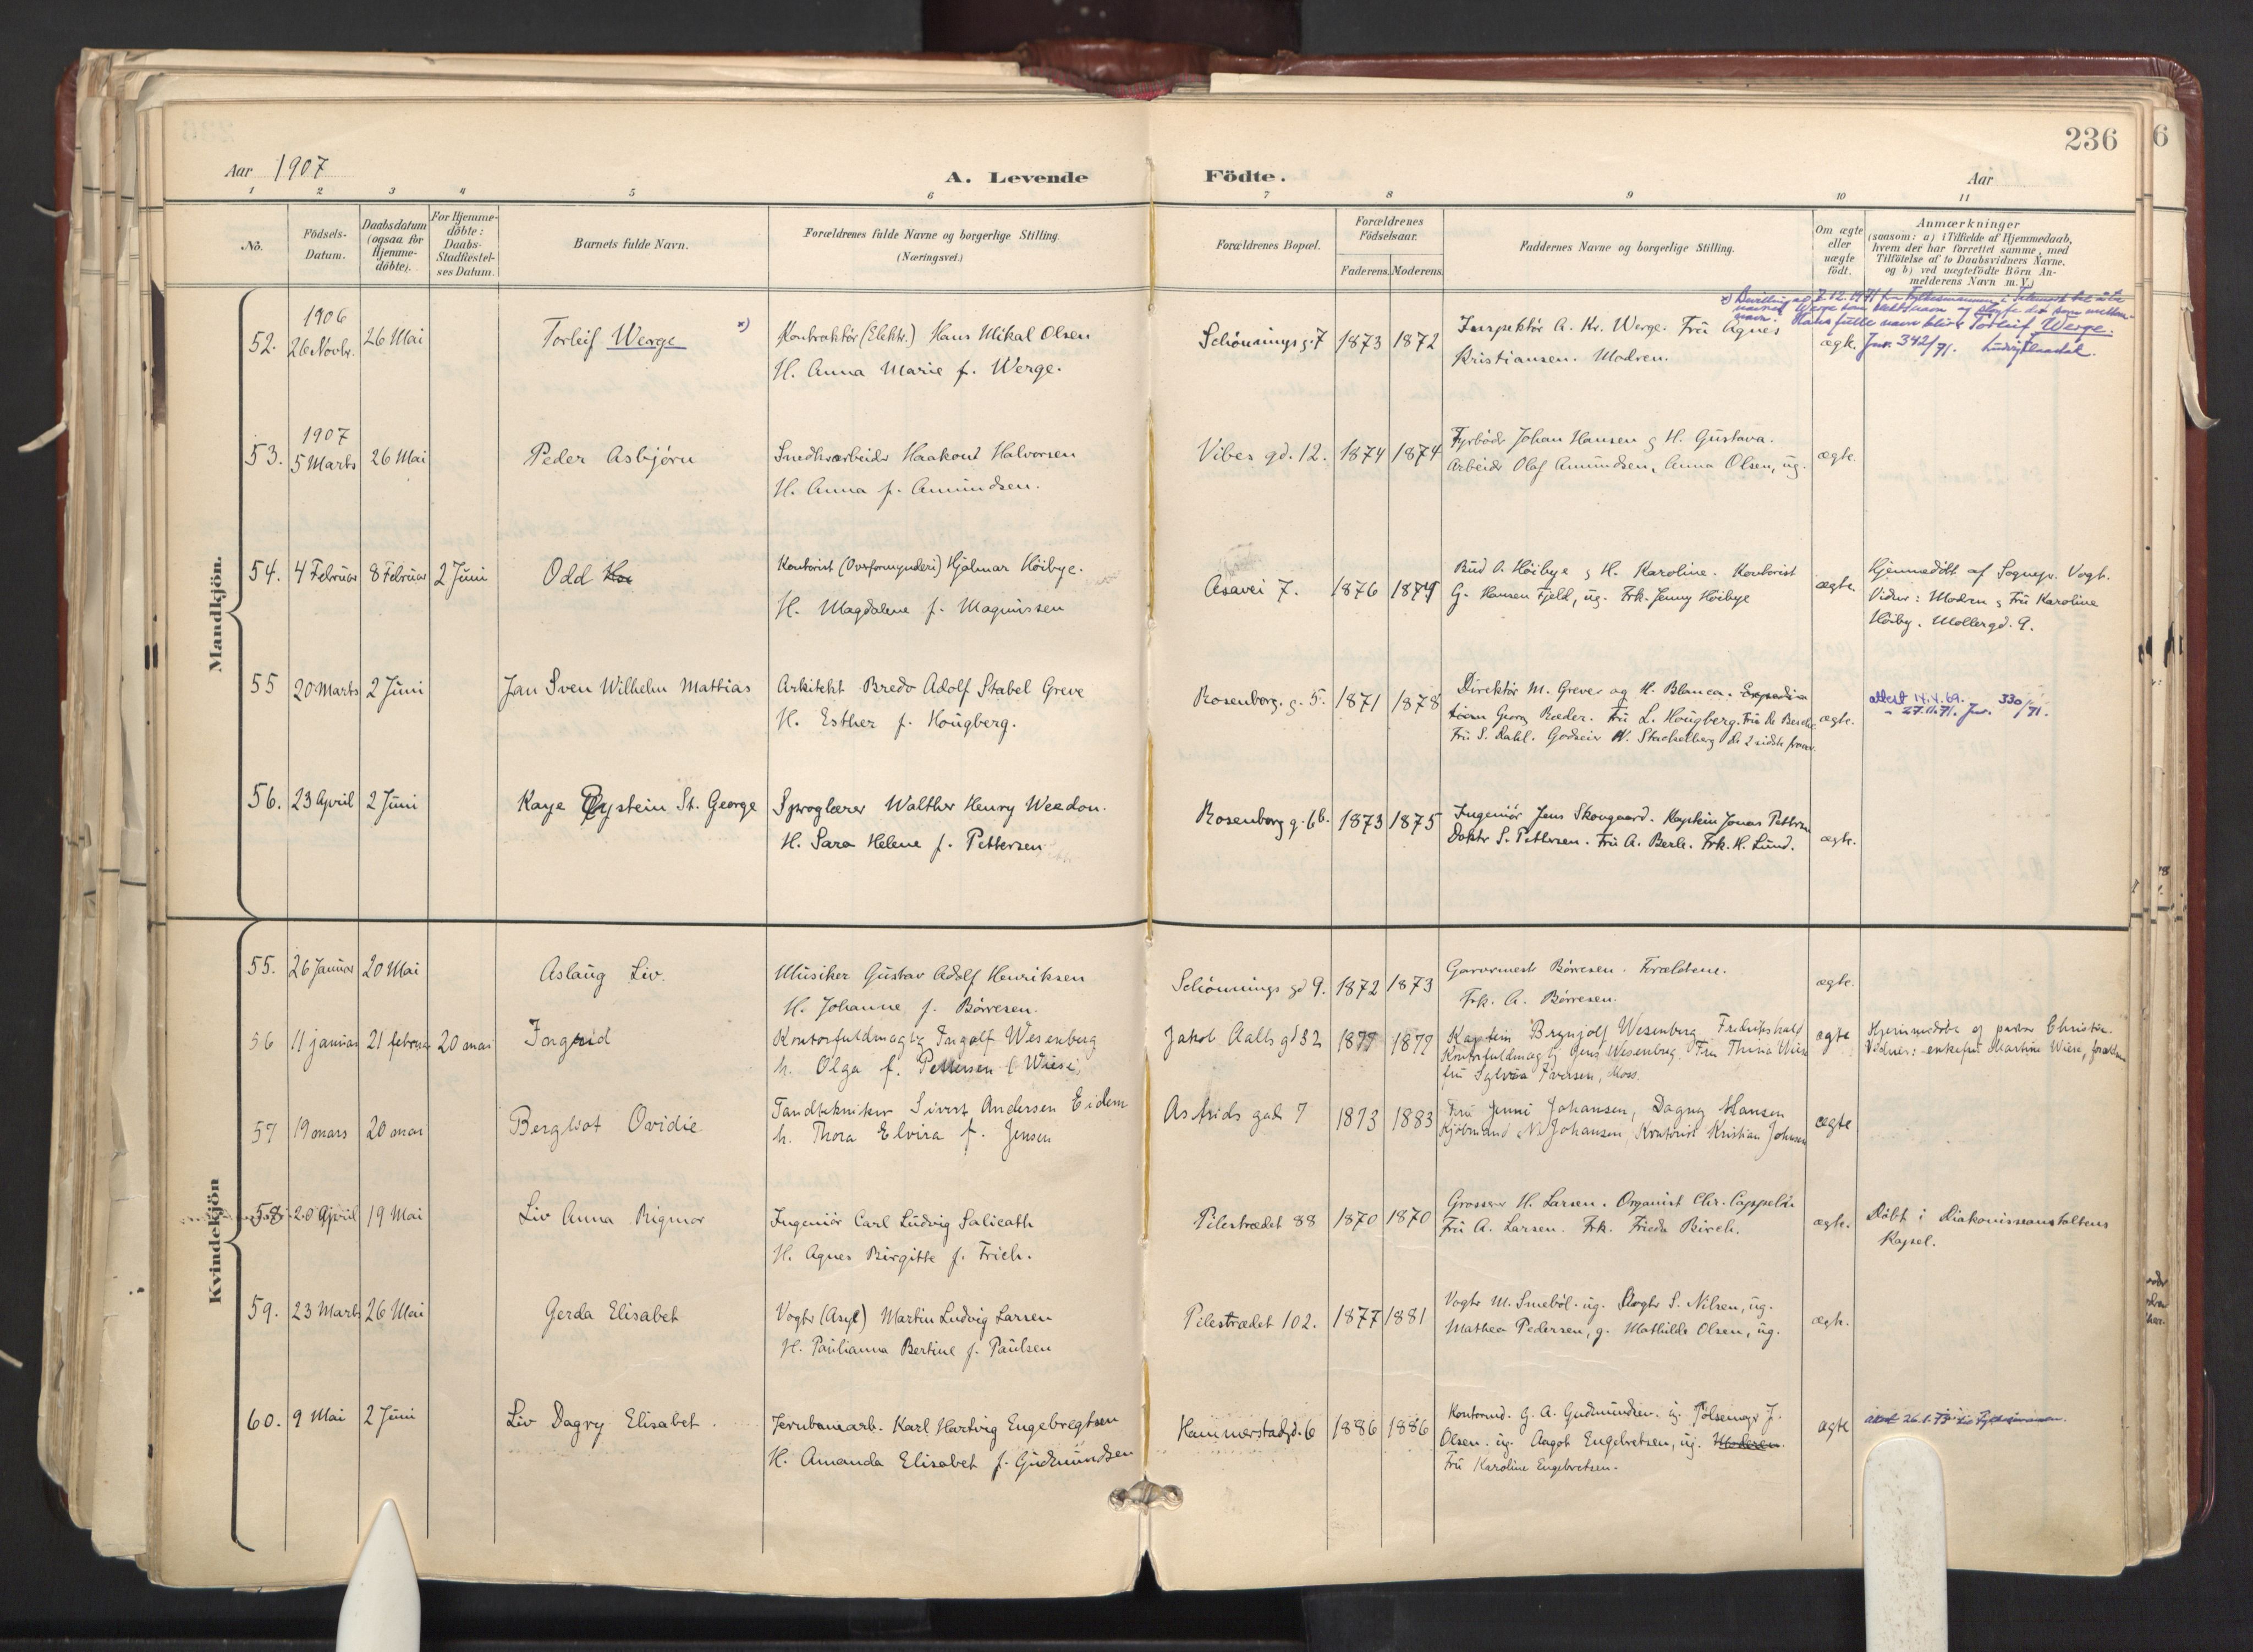 236
6
Aar 1907
A. Levende
Födte.
Aar
1 2 3 4 5 6 7 8 9 10 11
Nö.
Födsels-
Datum.
Daabsdatum
(ogsaa for
Hjemme-
döbte).
For Hjemme-
döbte:
Daabs-
Stadfæstel-
ses Datum.
Barnets fulde Navn.
Forældrenes fulde Navne og borgerlige Stilling.
(Næringsvei.)
Forældrenes Bopæl.
Forældrenes
Födselsaar.
Faderens. Moderens.
Faddernes Navne og borgerlige Stilling.
Om ægte
eller
uægte
födt.
Anmærkninger
(saasom: a) i Tilfælde af Hjemmedaab,
hvem der har forrettet samme, med
Tilföielse af to Daabsvidners Navne.
og b) ved uægtefödte Börn An-
melderens Navn m. V.)
Mandkjön.
1906
52. 26 Novbr. 26 Mai Torleif Werge x)
Kontraktör (Elektr.) Hans Mikal Olsen
H. Anna Marie f. Werge.
Schönnings g. 7 1873 1872
Inspektör A. Kr. Werge. Frü Agnes
Kristiansen. Modren.
ægt.
x) Bevilling ag 7.12.1971 fra Fylkesmannen i Telemark til å ta
navnet Werge som slektsnavn og sløyfe det som mellom-
navn. Hans fulle navn blir: Torleif Werge.
Jnr. 342/71. Ludvig Flaastad.
1907
53. 5 Marts 26 Mai Peder Asbjörn
Snedkerarbeider Haakont Halvorsen
H. Anna f. Amündsen.
Vibes gd. 12. 1874 1874
Fyrböder Johan Hansen & H. Güstava.
Arbeider Olaf Amündsen, Anna Olsen, üg.
ægte.
54. 4 Februar 8 Februar 2 Jüni Odd
Kontorist (Overformynderi) Hjalmar Höibye.
H. Magdalene f. Magnüssen
Asavei 7. 1876 1879
Büd O. Höibye & H. Karoline. Kontorist
G. Hansen Fjeld, üg. Frk. Jenny Höibye
ægte.
Hjemmedöbt af Sognepr. Vogt.
Vidner: Modren & Frü Karoline
Höiby. Mollergd. 9.
55 20 Marts 2 Jüni Jan Sven Wilhelm Mattias
Arkitekt Bredo Adolf Stabel Greve
H. Esther f. Hougberg.
Rosenborg. g. 5. 1871 1878
Direktör M. Greve og H. Blanca.
Georg Ræder. Frü L. Hougberg. Frü
Frü S. Dahl. Godseier W. Stachelberg de 2 sidste fravær.
ægte.
attest 14.4.69.
- 27.11.71. Jnr. 330/71.
56. 23 April 2 Jüni Kaye Øystein St. George
Sproglærer Walther Henry Weedon.
H. Sara Helene f. Pettersen
Rosenborg g. 6b. 1873 1875
Ingeniör Jens Skovgaard. Kaptein Jonas Pettersen
Doktor S. Pettersen. Frü A. Berle. Frk. H. Lünd.
ægte.
Kvindekjön
55. 26 Januar 20 Mai Aslaug Liv.
Müsiker Güstav Adolf Henriksen
H. Johanne f. Börresen.
Schönnings gd 9. 1872 1873
Garvermest. Börresen. Forældrene.
Frk. A. Börresen.
ægte.
56 11 januar 21 februar 20 mai Ingrid
Kontorfuldmægtig Ingolf Wesenberg
h. Olga f. Pettersen (Wiese)
Jakob Aalls gd 32 1879 1879
Kaptein Brynjolf Wesenberg, Fredrikshald
Kontorfuldmægtig Jens Wesenberg. Fru Thina Wiese
fru Sylvia Iversen, Moss.
ægte
Hjemmedöbt af pastor Christie.
Vidner: enkefru Martine Wiese,
57 19 mars 20 mai Bergliot Ovidie
Tandtekniker Sivert Andersen Eidem
h. Thora Elvira f. Jensen
Astrids gad 7 1873 1883
Fru Jenni Johansen, Dagny Hansen
Kjöbmand N. Johansen, Kontorist Kristian Johansen
ægte
58. 20 April 19 Mai Liv Anna Rigmor
Ingeniör Carl Lüdvig Salicath
H. Agnes Birgitte f. Frich.
Pilestrædet 88 1870 1870
Grosserer H. Larsen. Organist Chr. Cappelen
Frü A. Larsen. Frk. Frieda Birch.
ægte.
Döbt i Diakonisseanstaltens
Kapel.
59. 23 Marts 26 Mai Gerda Elisabet
Vogter (Asyl) Martin Ludvig Larsen
H. Paülianna Bertine f. Paülsen
Pilestrædet 102. 1877 1881
Vogter M. Smeböl. üg. Vogter S. Nilsen, üg.
Mathea Pedersen, g. Mathilde Olsen, üg.
ægte.
60. 9 Mai 2 Jüni Liv Dagny Elisabet.
Jernbanearb. Karl Hartvig Engebregtsen
H. Amanda Elisabet f. Güdmündsen
Hammerstadgd. 6 1886 1886
Kontormd. G. A. Gudmündsen. üg. Pölsemager J.
Olsen. üg. Aagot Engebretsen, üg. Moderen.
Frü Karoline Engebretsen.
ægte
attest 26.1.73